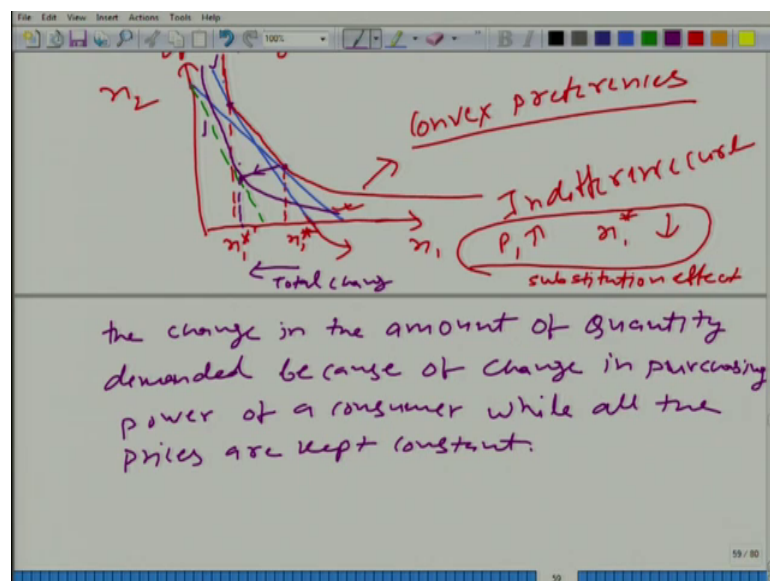 File Edit View Insert Actions Tools Help
100%
B I
x₂
Convex preferences
Indifference curve
P₁ ↑ x₁* ↓
x₁*' x₁* x₁
Total chang
substitution effect
the change in the amount of Quantity
demanded because of change in purchasing
power of a consumer while all the
prices are kept constant.
59 / 80
59